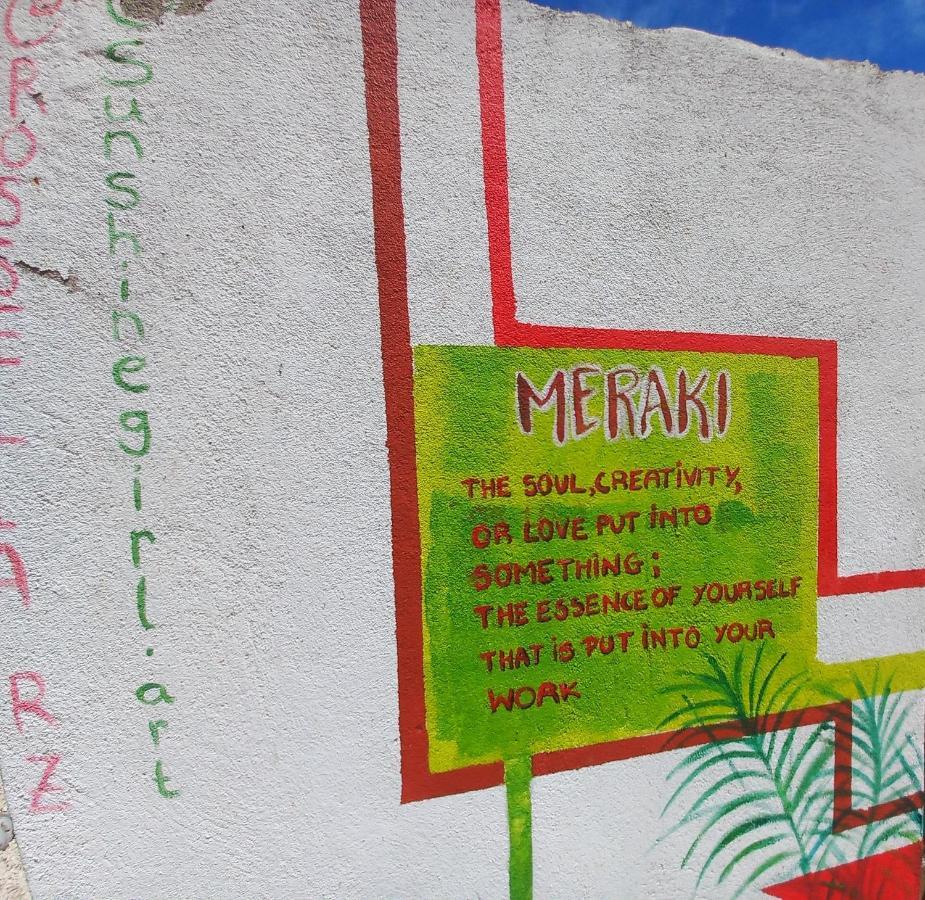 @sunshinegirl.art
MERAKI
THE SOUL,CREATIVITY,
OR LOVE PUT INTO
SOMETHING;
THE ESSENCE OF YOURSELF
THAT iS PUT iNTO YOUR
WORK